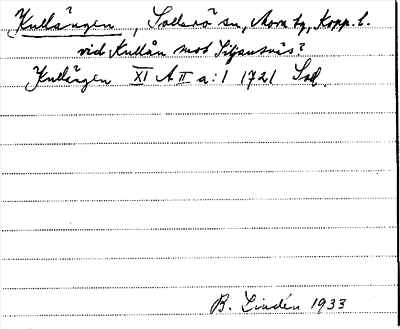 Kullängen, Sollerö sn, Mora tg, Kopp. l.
vid Kullån mot Siljansnäs?
Kullängen XI A II a:1 1721 Sol.
B. Lindén 1933